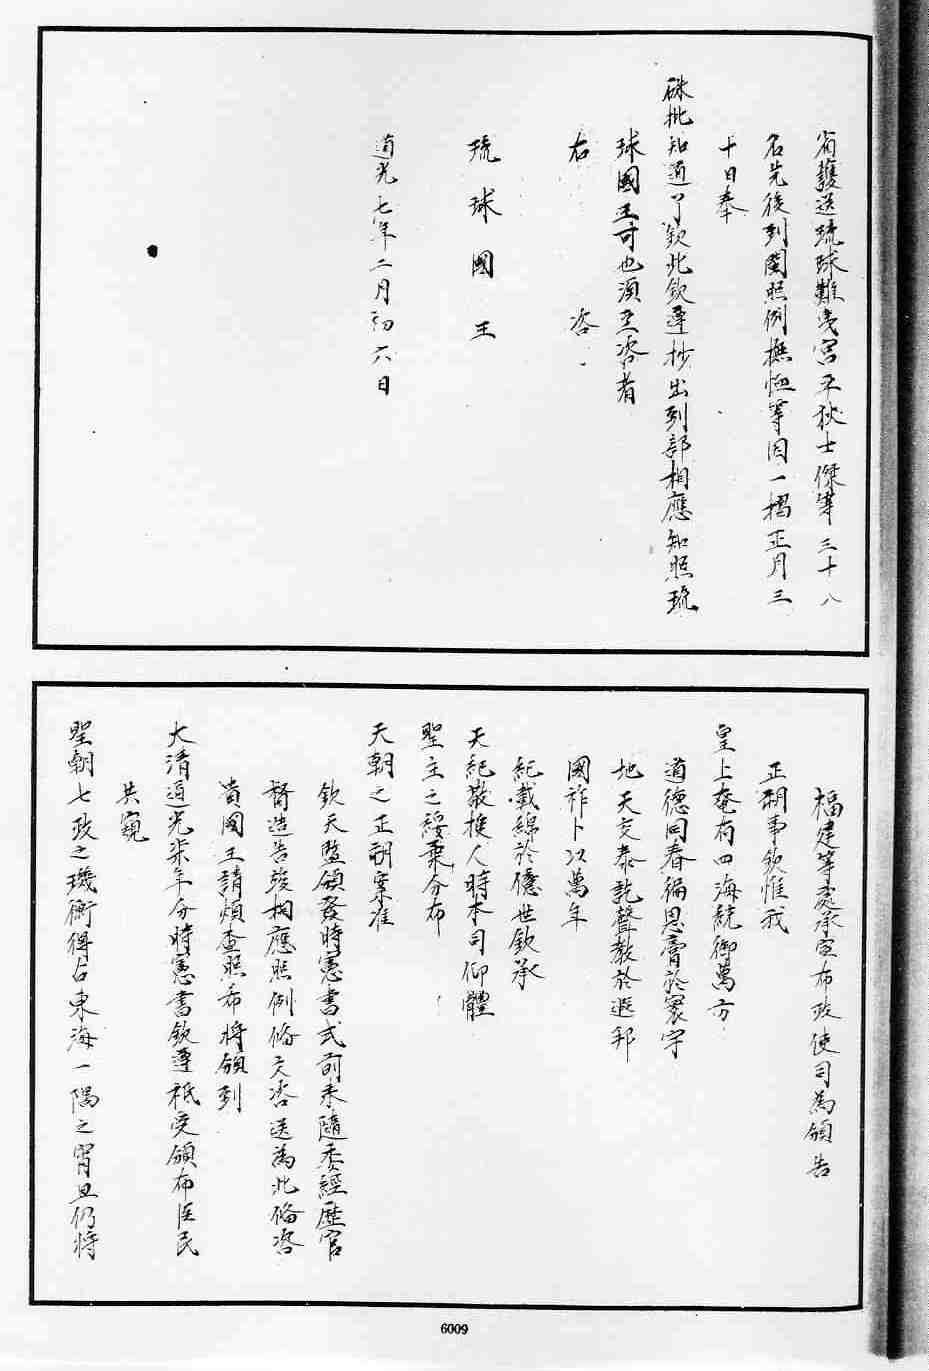 省護送琉球難夷宮平狄士傑等三十八
名先後到閩照例撫恤等因一摺正月三
十日奉
硃批知道了欽此欽遵抄出到部相應知照琉
球國王可也須至咨者
右咨
琉球國王
道光七年二月初六日
福建等處承宣布政使司為頒告
正朔事欽惟我
皇上奄有四海統御萬方
道德同春徧恩膏於寰宇
地天交泰訖聲教於遐邦
國祚卜以萬年
紀載綿於億世欽承
天紀敬授人時本司仰體
聖主之綏乗分布
天朝之正朔案准
欽天監頒發時憲書式前來隨委經歷官
督造告竣相應照例俻文咨送為此俻咨
貴國王請煩查照希將頒到
大清道光柒年分時憲書欽遵祇受頒布臣民
共窺
聖朝七政之璣衡得占東海一隅之宵旦仍將
6009